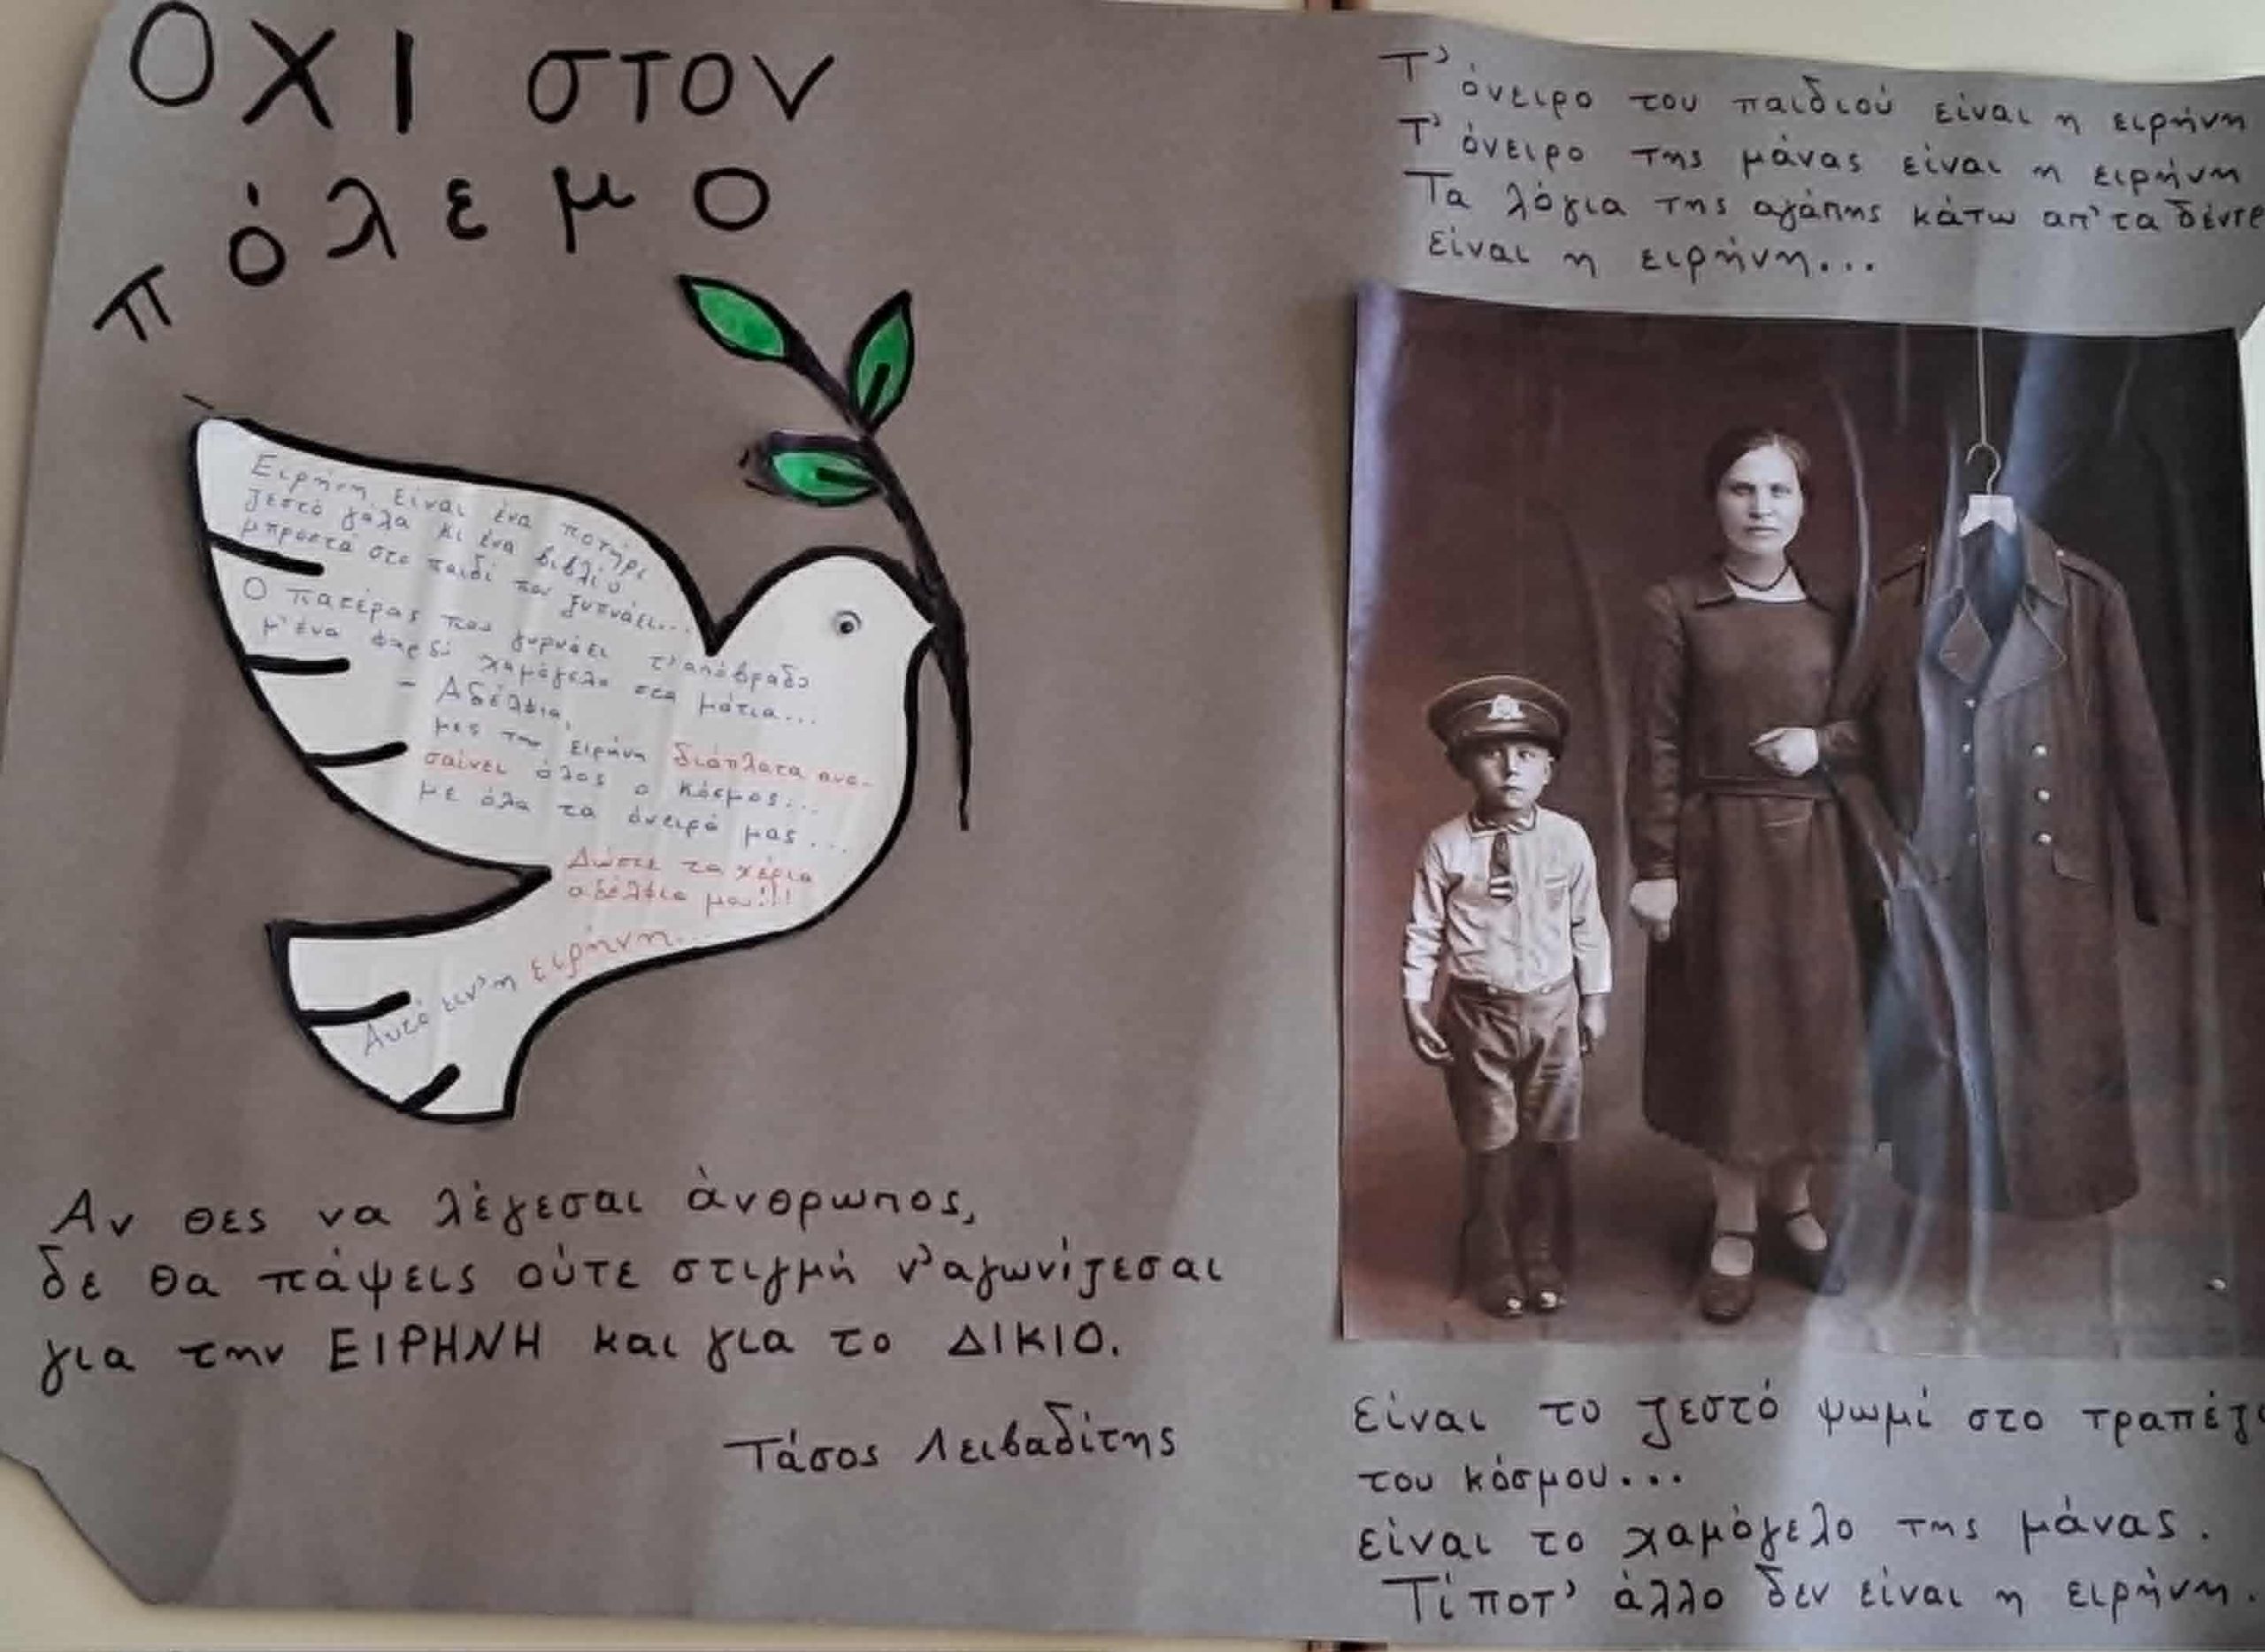 ΟΧΙ στον
πόλεμο
Ειρήνη είναι ένα ποτήρι
ζεστό γάλα κι ένα βιβλίο
μπροστά στο παιδί που ξυπνάει...
Ο πατέρας που γυρνάει τ' απόβραδο
μ' ένα φαρδύ χαμόγελο στα μάτια...
- Αδέλφια,
μες την ειρήνη διάπλατα ανα-
σαίνει όλος ο κόσμος...
με όλα τα όνειρά μας...
Δώστε τα χέρια
αδέλφια μου!!!
Αυτό ειν' η ειρήνη...
Αν θες να λέγεσαι άνθρωπος,
δε θα πάψεις ούτε στιγμή ν' αγωνίζεσαι
για την ΕΙΡΗΝΗ και για το ΔΙΚΙΟ.
Τάσος Λειβαδίτης
Τ' όνειρο του παιδιού είναι η ειρήνη
Τ' όνειρο της μάνας είναι η ειρήνη
Τα λόγια της αγάπης κάτω απ' τα δέντρ
είναι η ειρήνη...
είναι το ζεστό ψωμί στο τραπέζι
του κόσμου...
είναι το χαμόγελο της μάνας.
Τίποτ' άλλο δεν είναι η ειρήνη.